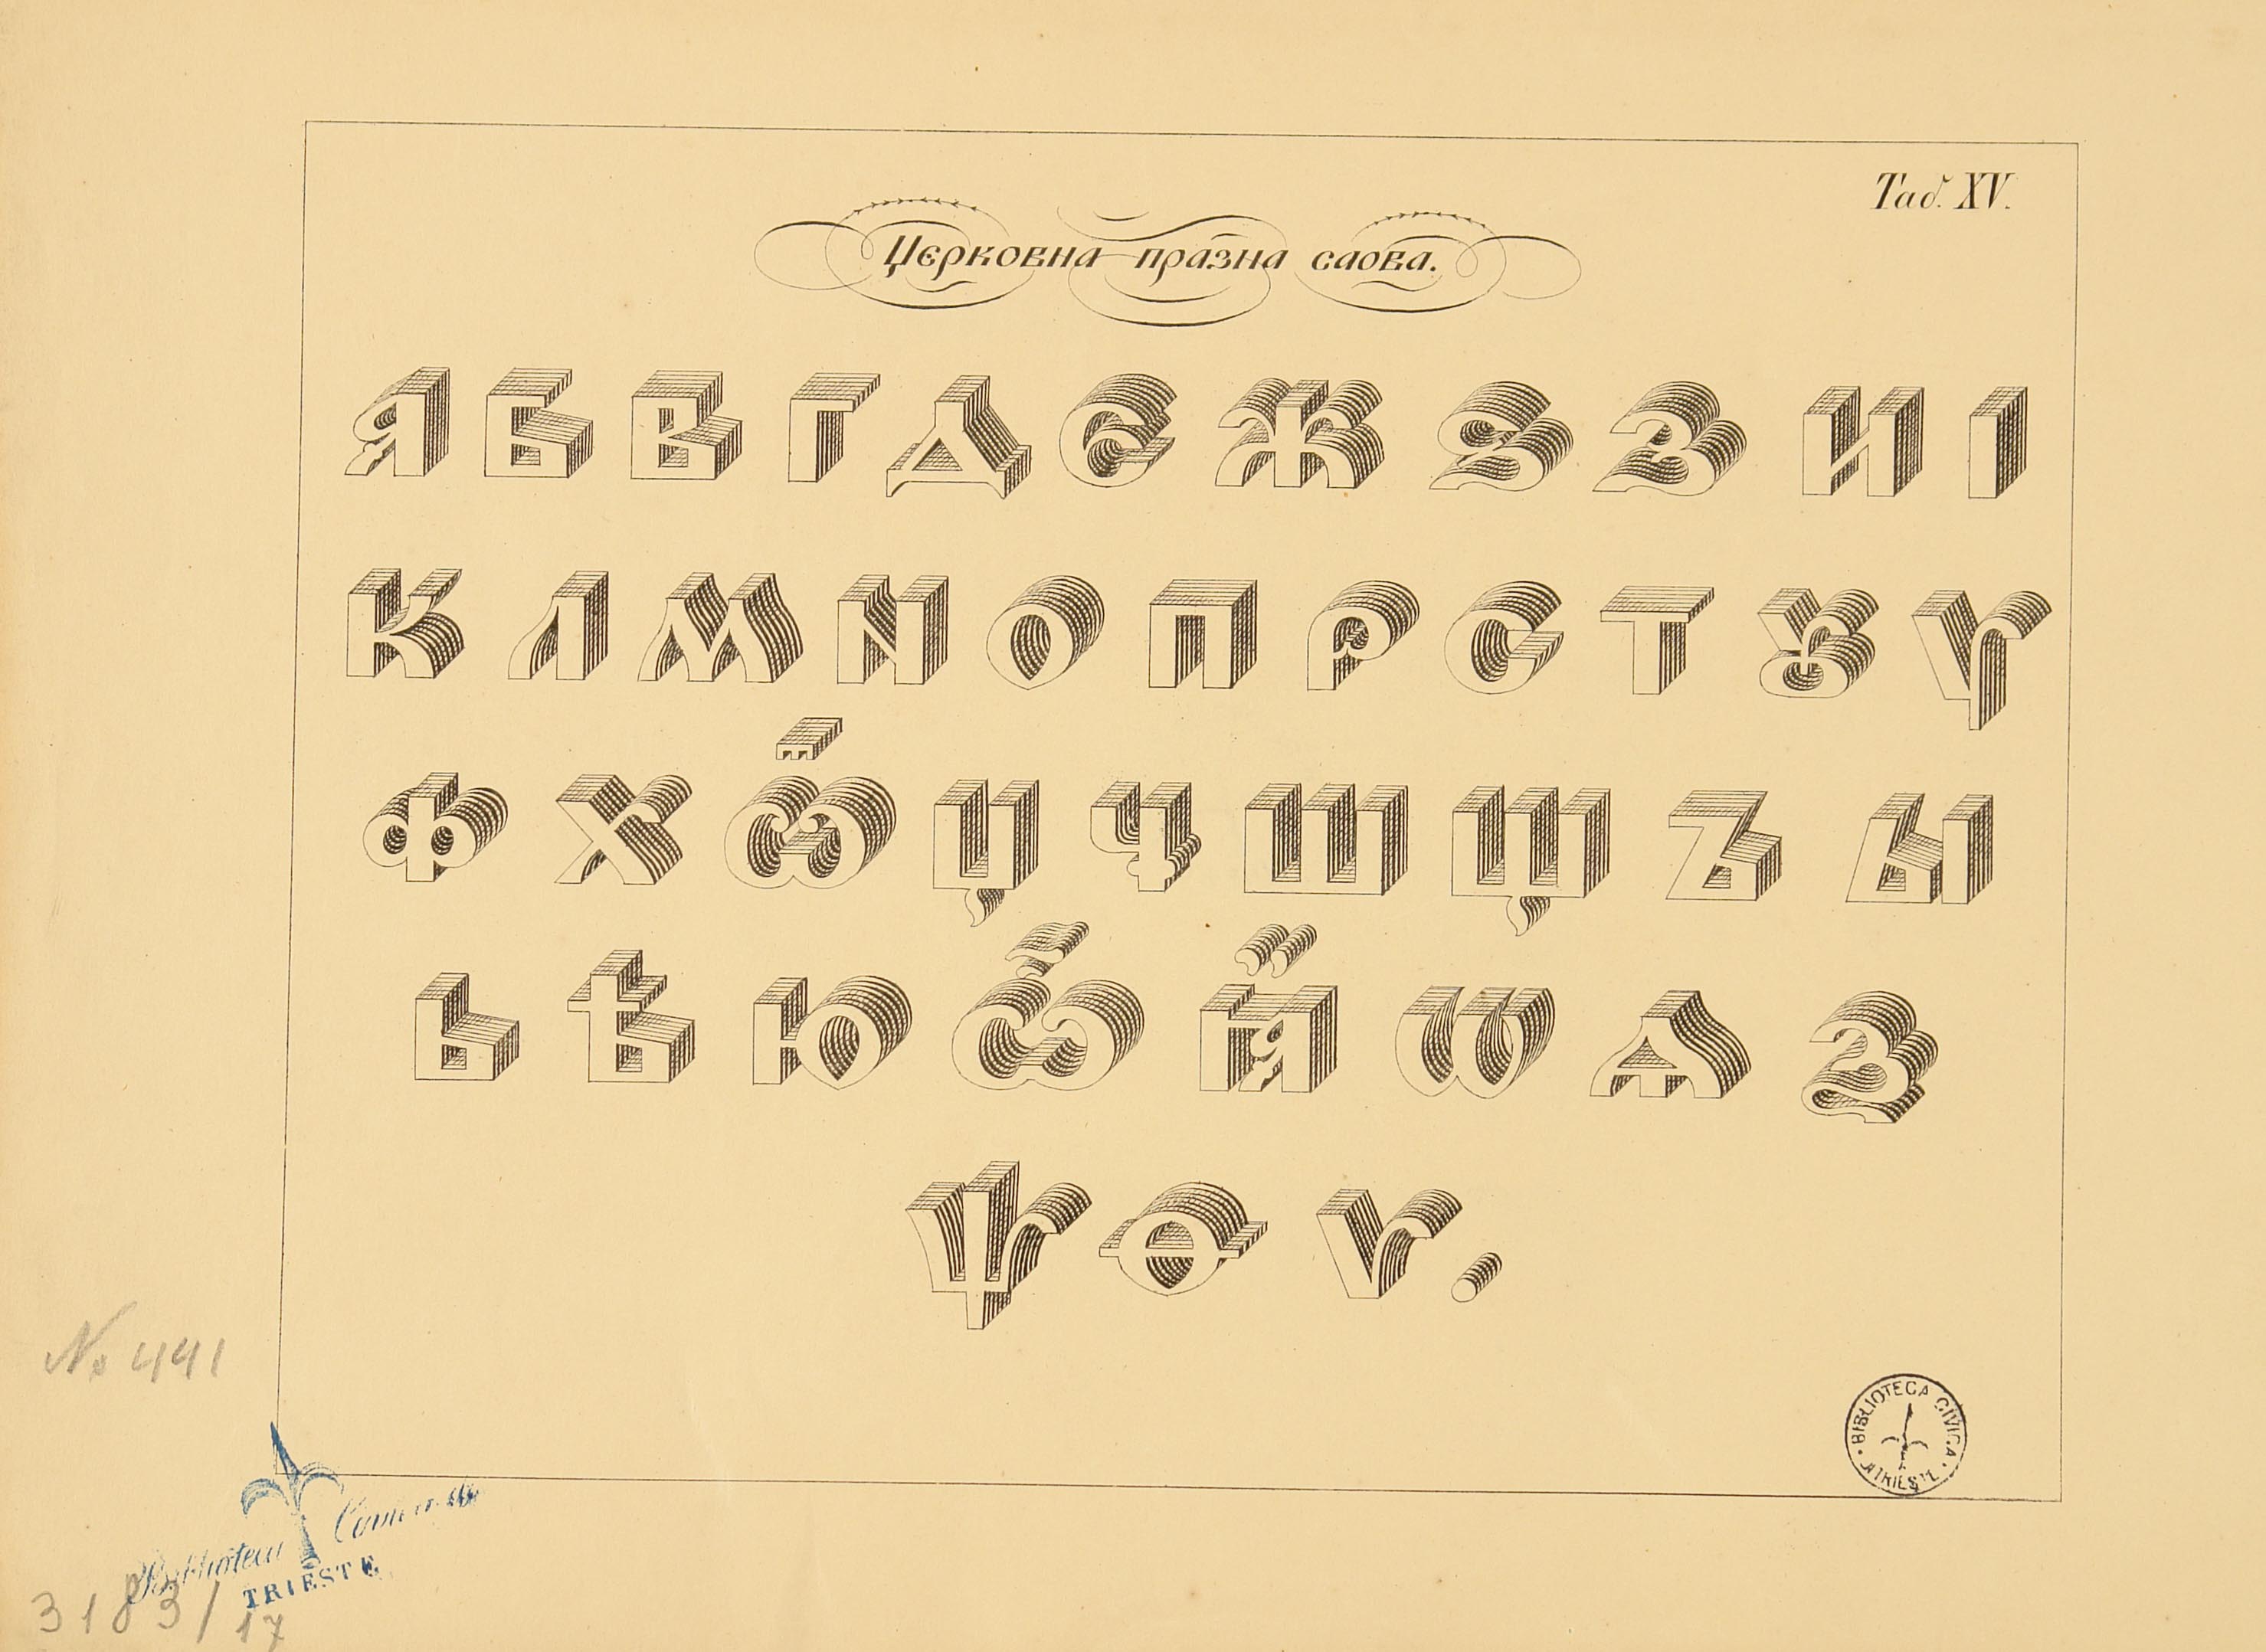 Таб. XV.
Церковна празна слова.
Я Б В Г Д Є Ж Ѕ З И І
К Л М N О П Р С Т Ꙋ Ѵ
Ф Х Ѿ Ц Ч Ш Щ Ъ Ы
Ь Ѣ Ю Ѽ Ꙗ Ѡ Ѧ Ѯ
Ѱ Ѳ Ѵ.
№ 441
BIBLIOTECA CIVICA
TRIESTE
Biblioteca Comunale
TRIESTE
3183/17